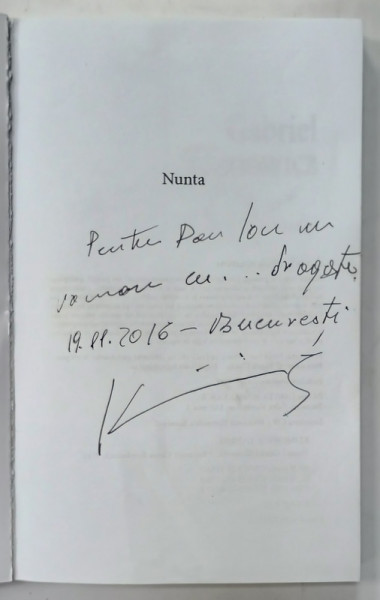 Nunta
Pentru Dan Ion un
roman cu... dragoste,
19.11.2016 – București
Gabriel